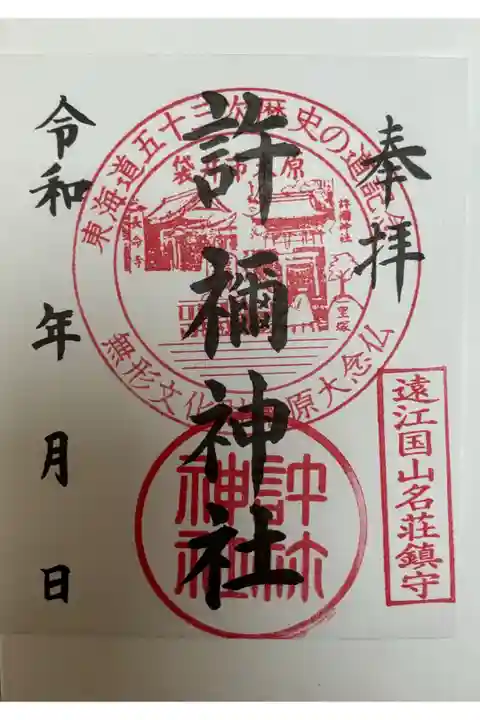 奉拝
許禰神社
令和 年 月 日
東海道五十三次歴史の道記念
袋井市 原
許禰神社
里塚
無形文化 原大念仏
許祢神社
遠江国山名荘鎮守